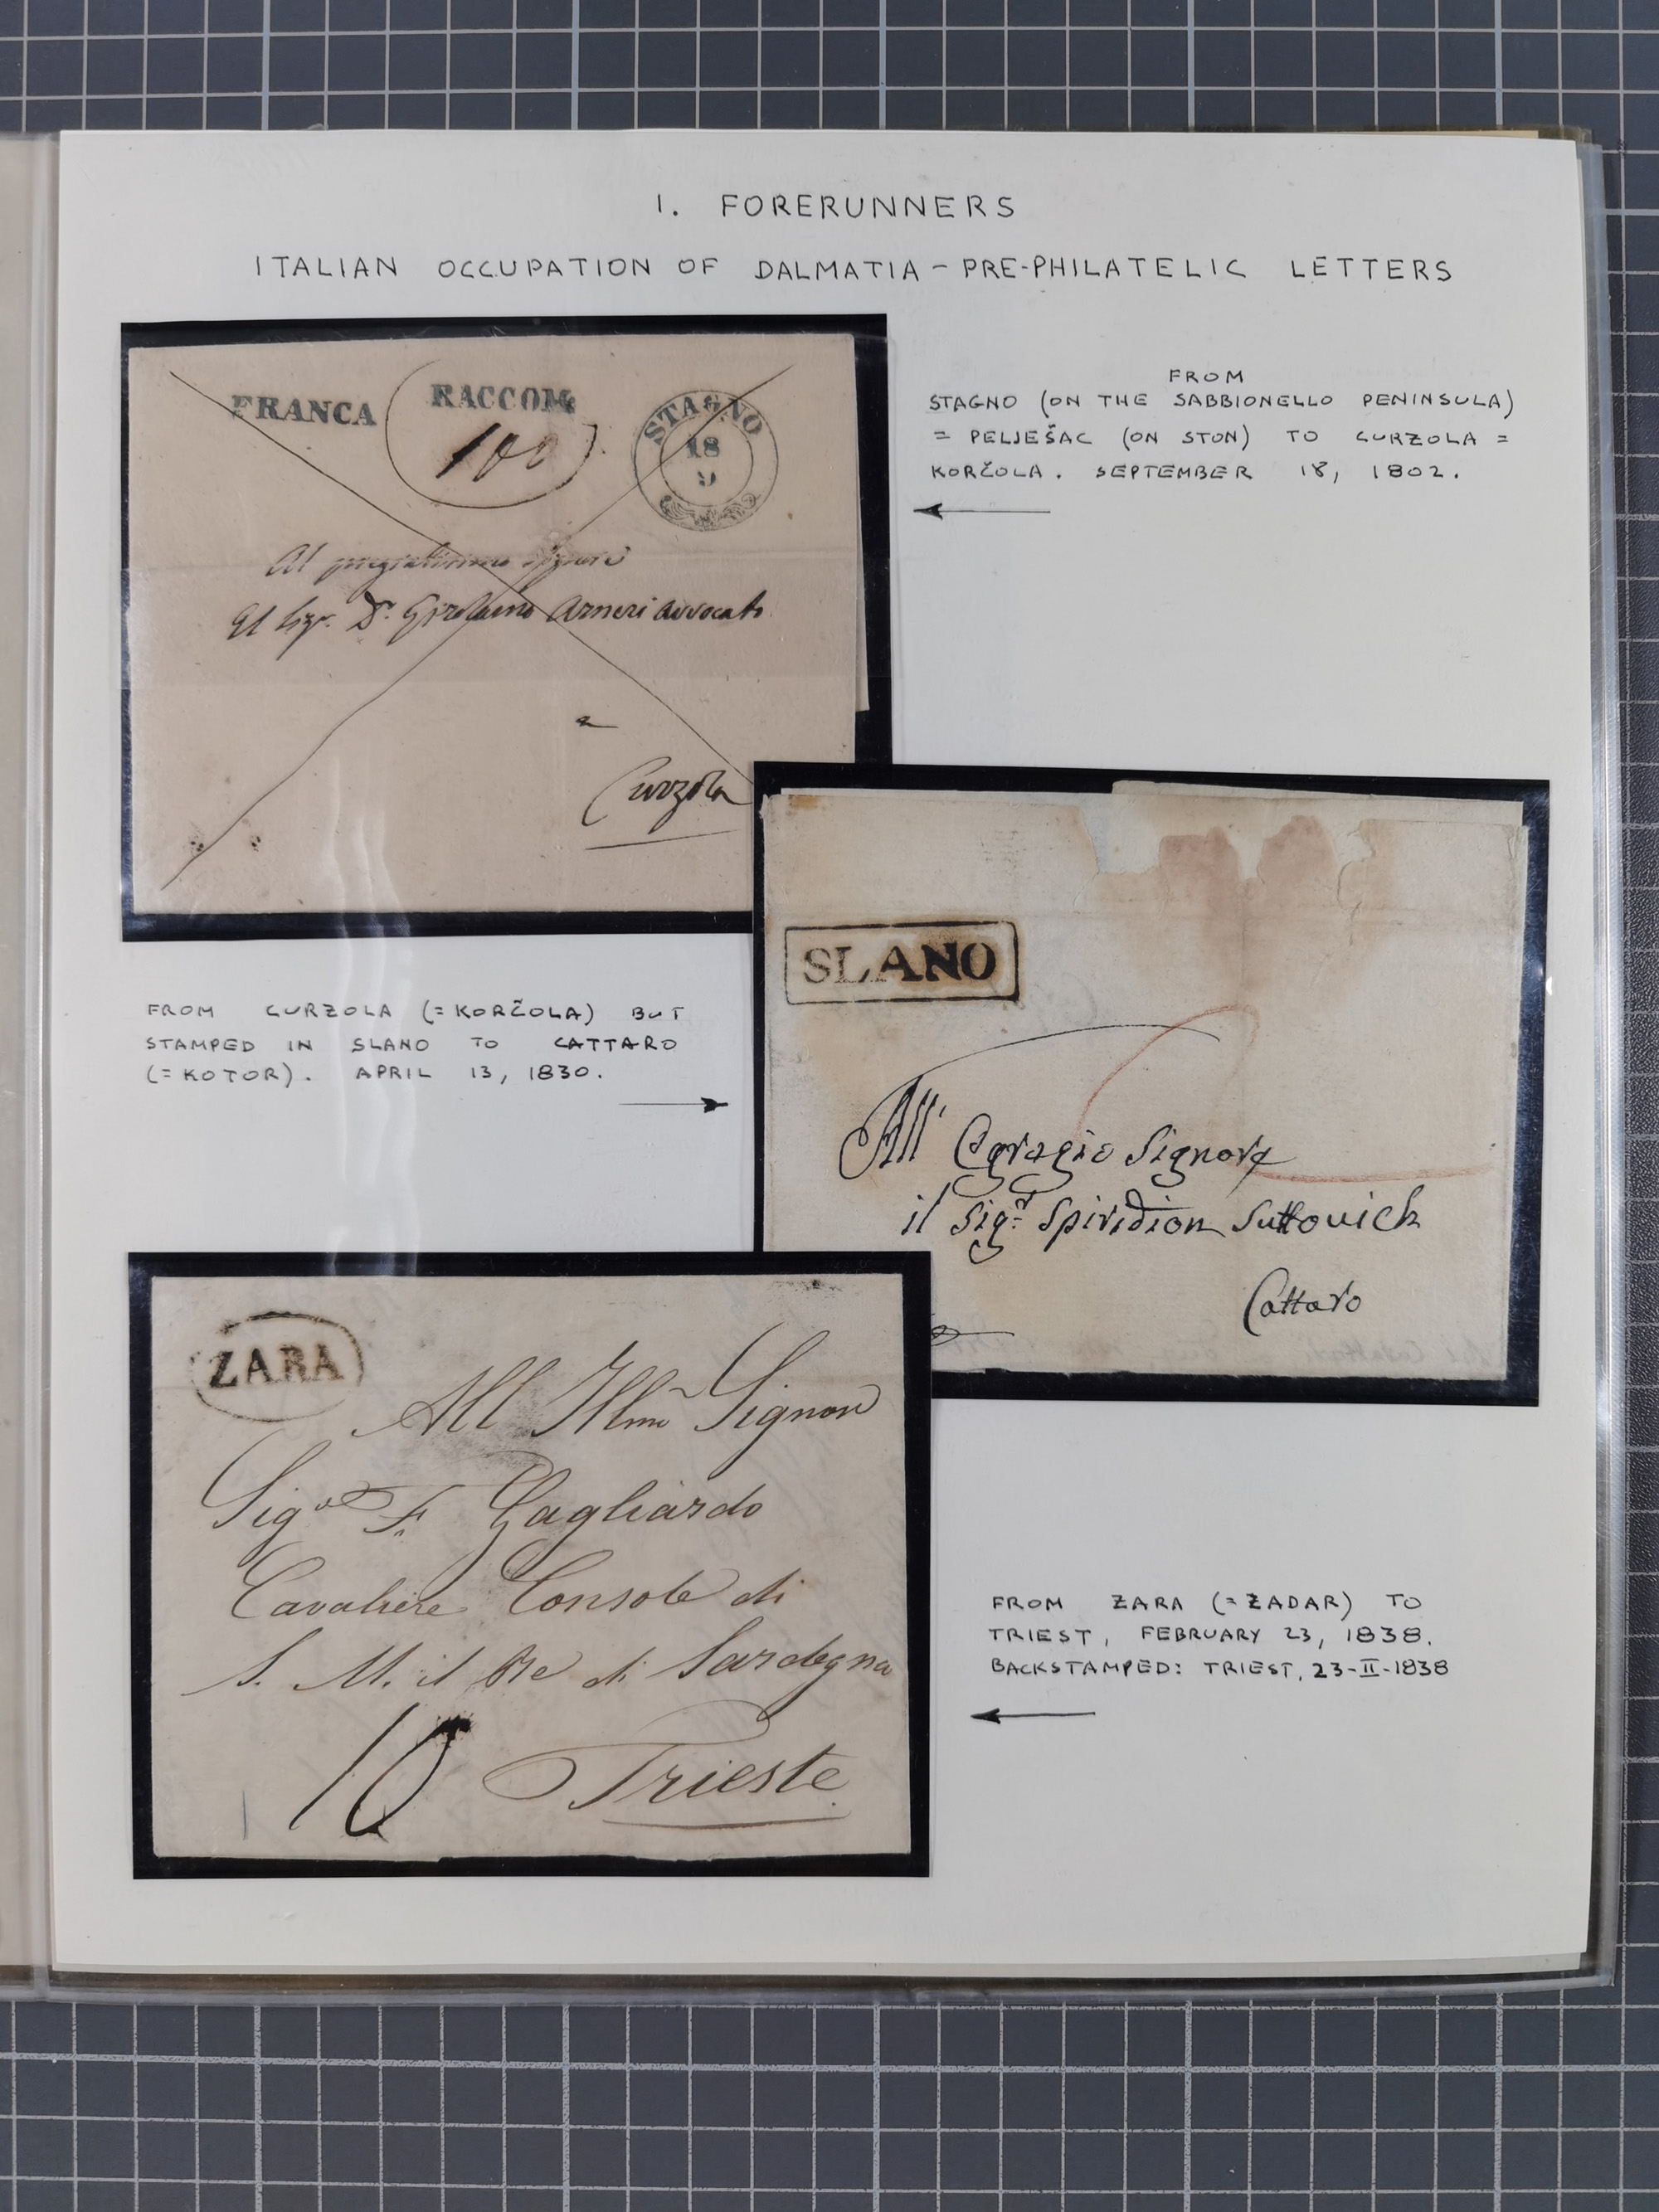 1. FORERUNNERS
ITALIAN OCCUPATION OF DALMATIA - PRE-PHILATELIC LETTERS
FRANCA
RACCOM
100
STAGNO
18
9
Al pregiatissimo Signore
Il Sigr. Dr. Girolamo Arneri Avvocato
a
Curzola
FROM
STAGNO (ON THE SABBIONELLO PENINSULA)
= PELJEŠAC (ON STON) TO CURZOLA =
KORČOLA. SEPTEMBER 18, 1802.
SLANO
All' Egregio Signore
il Sigr. Spiridion Suttovich
Cattaro
FROM CURZOLA (=KORČOLA) BUT
STAMPED IN SLANO TO CATTARO
(=KOTOR). APRIL 13, 1830.
ZARA
All Illmo Signor
Sigr F. Gagliardo
Cavaliere Console di
S. M. il Re di Sardegna
10 Trieste
FROM ZARA (=ZADAR) TO
TRIEST, FEBRUARY 23, 1838.
BACKSTAMPED: TRIEST, 23-II-1838